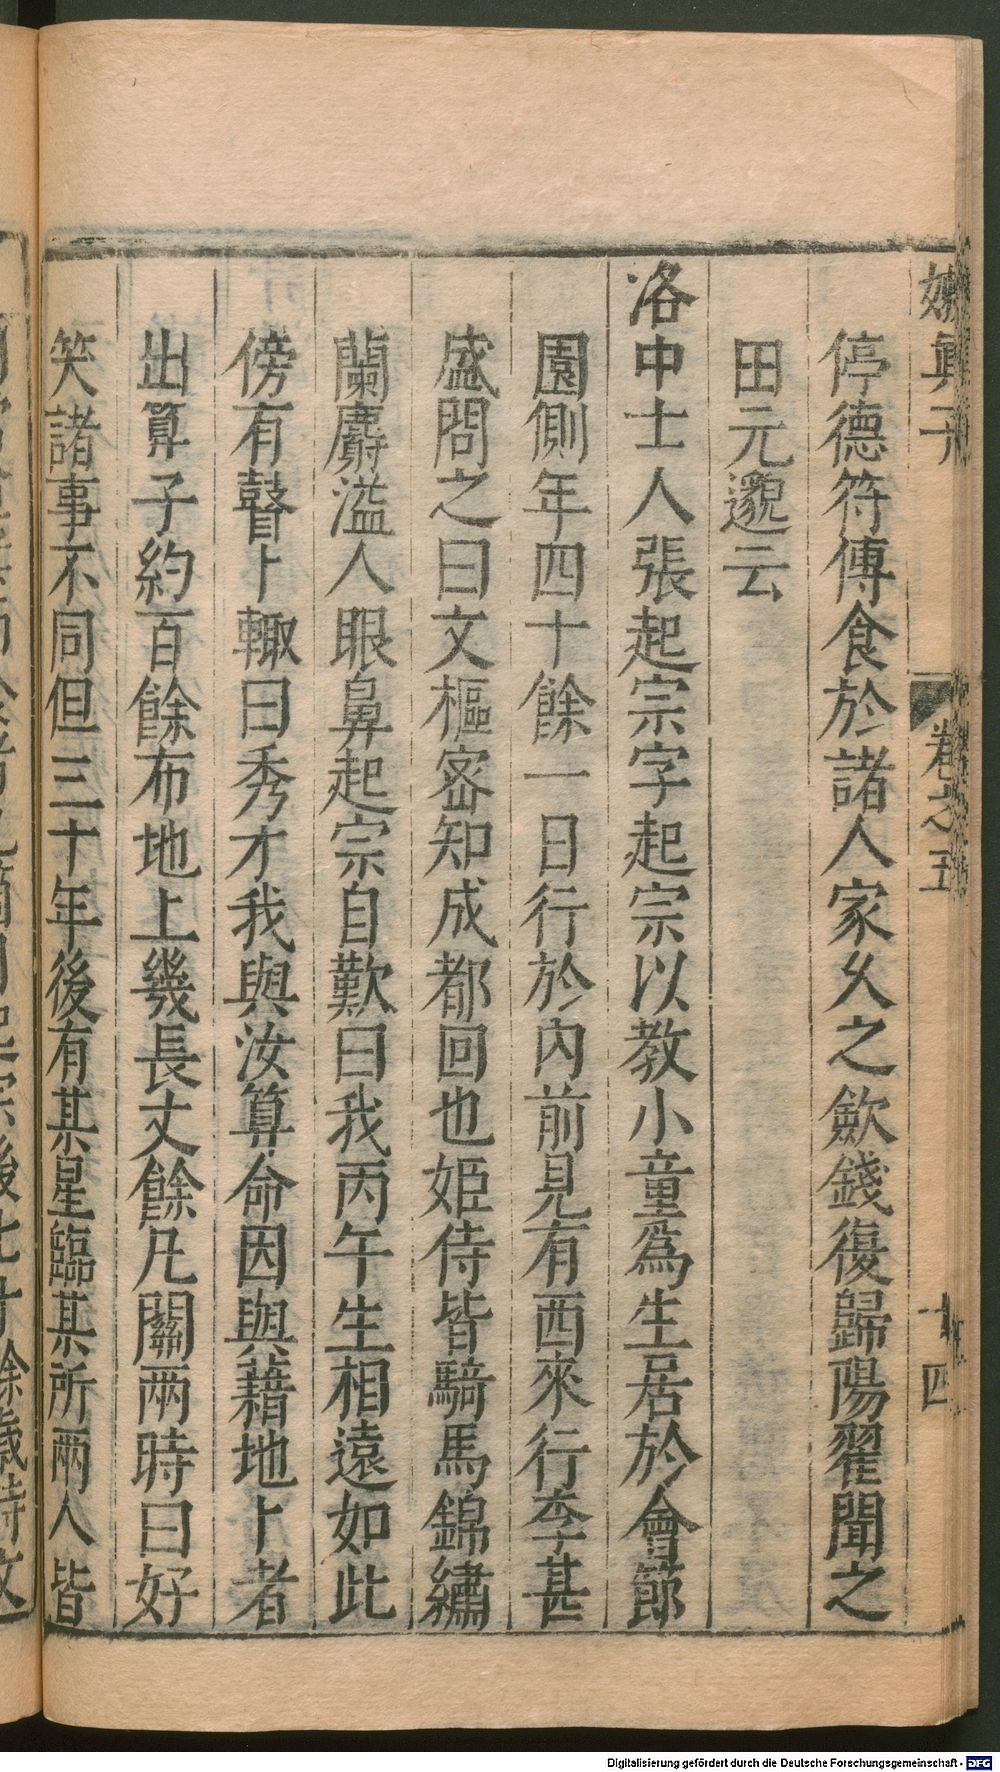 嬾眞子
卷之五
十四
停德符傳食於諸人家乆之歛錢復歸陽翟聞之
田元邈云
洛中士人張起宗字起宗以教小童爲生居於會節
園側年四十餘一日行於內前見有西來行李甚
盛問之曰文樞密知成都回也姬侍皆騎馬錦繡
蘭麝溢人眼鼻起宗自歎曰我丙午生相遠如此
傍有瞽卜輙曰秀才我與汝算命因與藉地卜者
出算子約百餘布地上幾長丈餘凡關兩時曰好
笑諸事不同但三十年後有某星臨某所兩人皆
Digitalisierung gefördert durch die Deutsche Forschungsgemeinschaft - DFG